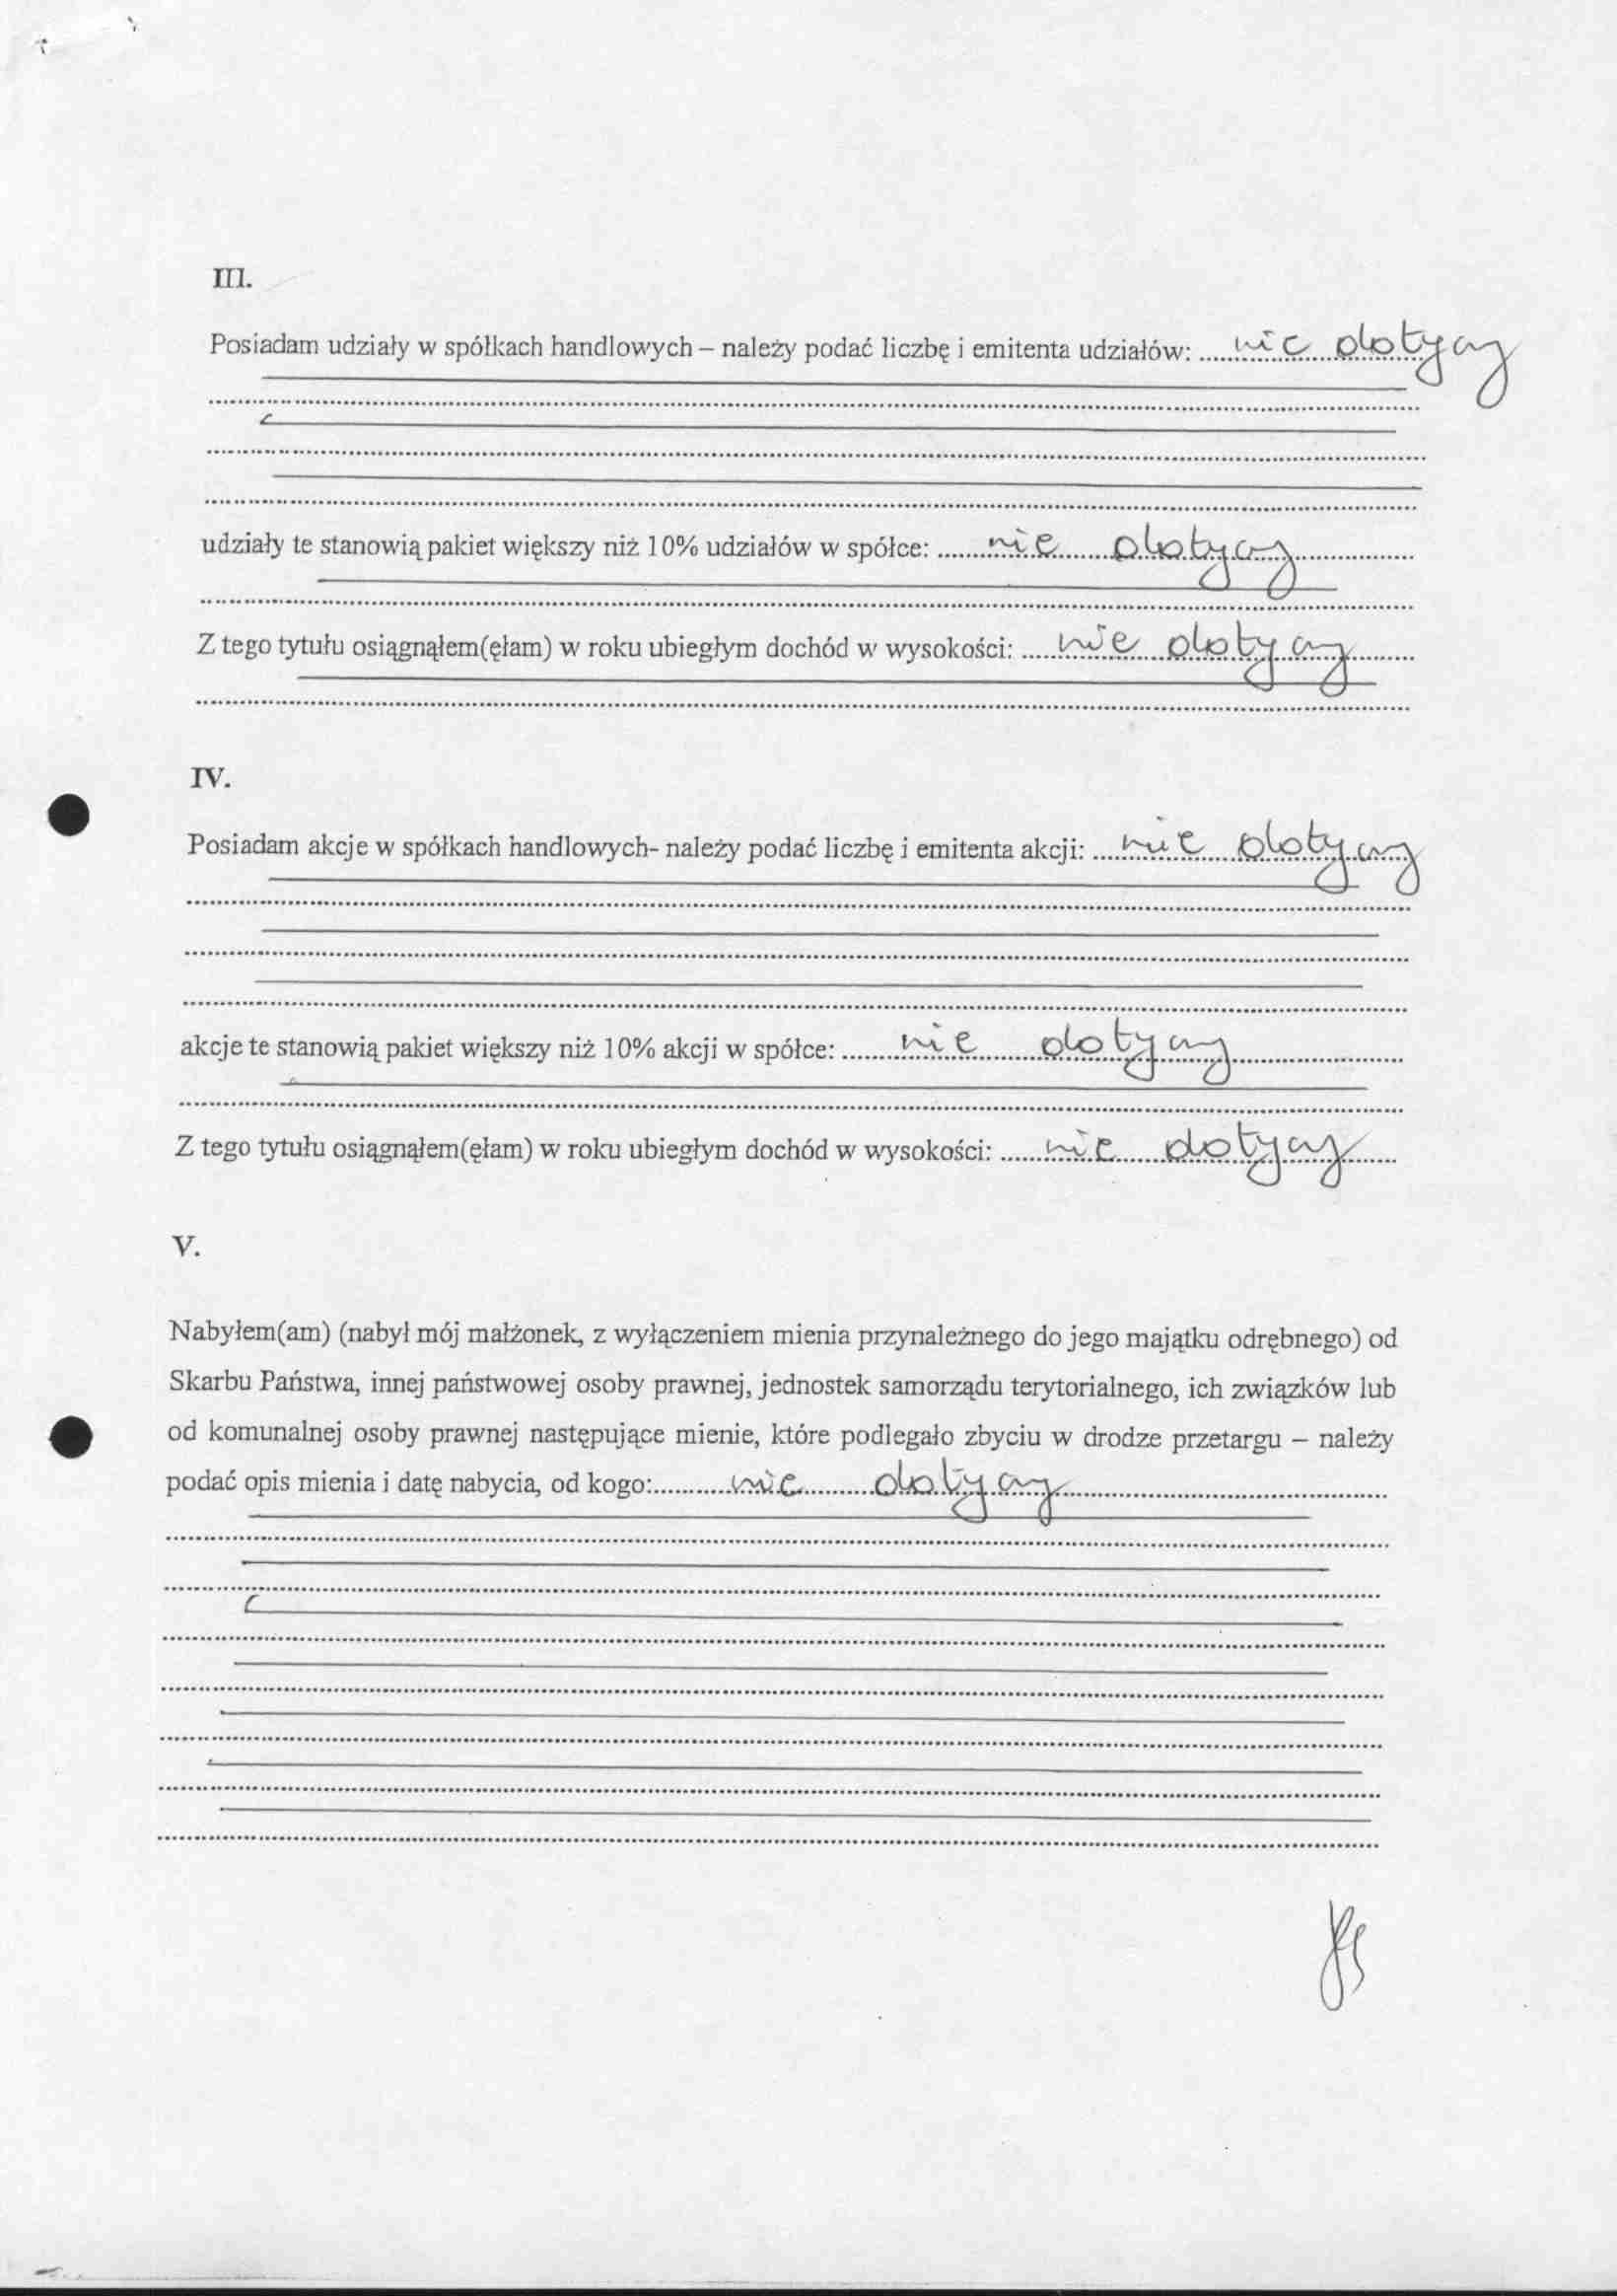 III.
Posiadam udziały w spółkach handlowych – należy podać liczbę i emitenta udziałów: ..... nie dotyczy
udziały te stanowią pakiet większy niż 10% udziałów w spółce: ..... nie dotyczy
Z tego tytułu osiągnąłem(ęłam) w roku ubiegłym dochód w wysokości: ..... nie dotyczy
IV.
Posiadam akcje w spółkach handlowych- należy podać liczbę i emitenta akcji: ..... nie dotyczy
akcje te stanowią pakiet większy niż 10% akcji w spółce: ..... nie dotyczy
Z tego tytułu osiągnąłem(ęłam) w roku ubiegłym dochód w wysokości: ..... nie dotyczy
V.
Nabyłem(am) (nabył mój małżonek, z wyłączeniem mienia przynależnego do jego majątku odrębnego) od
Skarbu Państwa, innej państwowej osoby prawnej, jednostek samorządu terytorialnego, ich związków lub
od komunalnej osoby prawnej następujące mienie, które podlegało zbyciu w drodze przetargu – należy
podać opis mienia i datę nabycia, od kogo:..... nie dotyczy